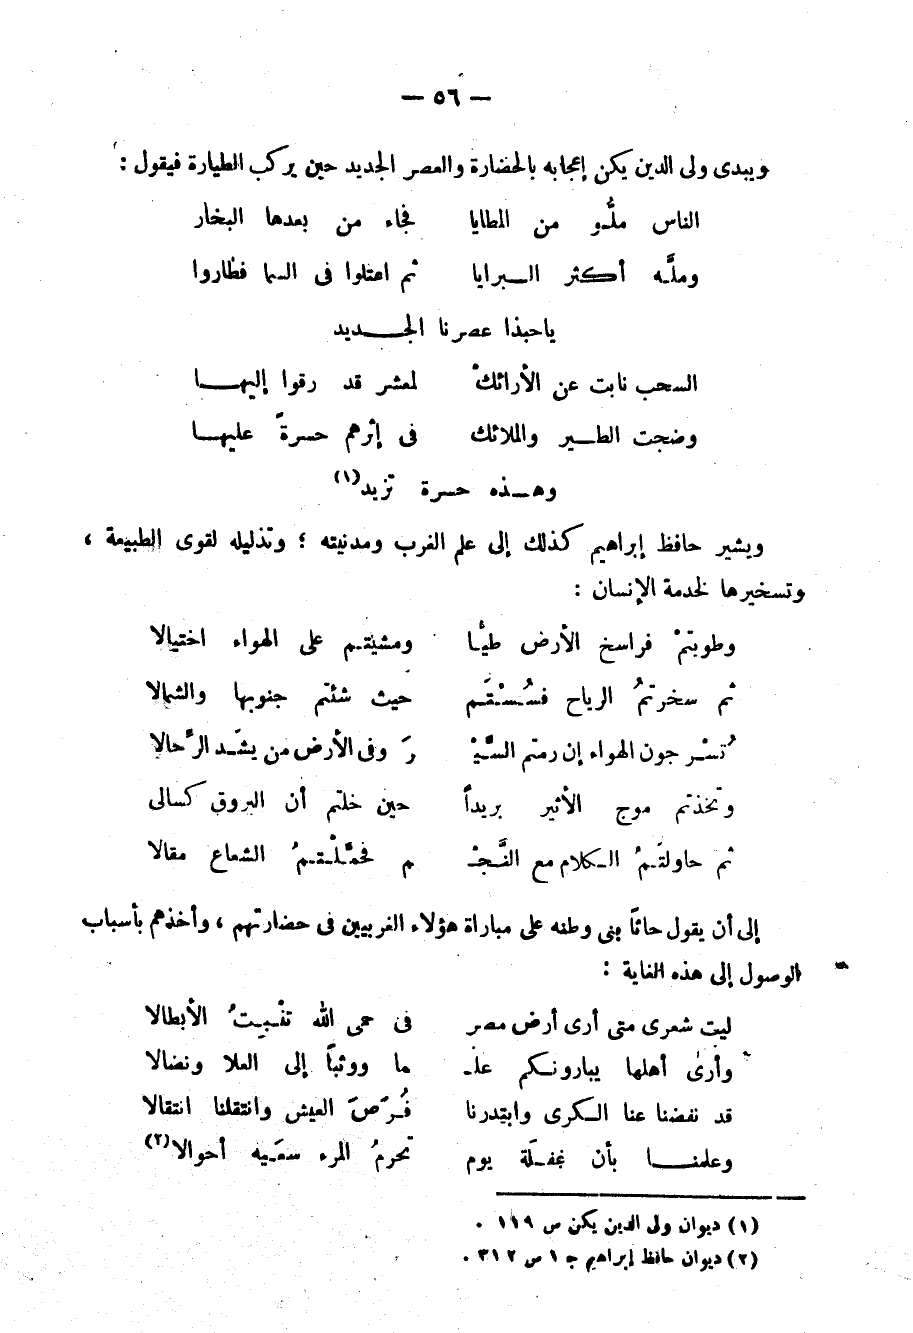 — ٥٦ —
ويبدى ولى الدين يكن إعجابه بالحضارة والعصر الجديد حين يركب الطيارة فيقول :
الناس ملُّـو من المطايا فجاء من بعدها البخار
وملَّـه أكثر الـبرايا ثم اعتلوا فى السما فطاروا
ياحبذا عصرنا الجـديد
السحب نابت عن الأرائكْ لمعشر قد رقوا إليهـا
وضجت الطـير والملائك فى إثرهم حسرةً عليهـا
وهـذه حسرة تزيد(١)
ويشير حافظ إبراهيم كذلك إلى علم الغرب ومدنيته ؛ وتذليله لقوى الطبيعة ،
وتسخيرها لخدمة الإنسان :
وطويتمْ فراسخ الأرض طيًّـا ومشيتـم على الهواء اختيالا
ثم سخرتمُ الرياح فسُـسْـتَـم حيث شئتم جنوبها والشمالا
تُسْـرجون الهواء إن رمتم السَّيْـ رَ وفى الأرض من يشـد الرَّحالا
وتخذتم موج الأثير بريداً حين خلتم أن البروق كسالى
ثم حاولتـمُ الـكلام مع النَّـجْـ م فحمَّـلْـتـمُ الشعاع مقالا
إلى أن يقول حاثاً بنى وطنه على مباراة هؤلاء الغربيين فى حضارتهم ، وأخذهم بأسباب
الوصول إلى هذه الغاية :
ليت شعرى متى أرى أرض مصر فى حمى الله تنْـبـتُ الأبطالا
وأرى أهلها يبارونـكم علـ ما ووثباً إلى العلا ونضالا
قد نفضنا عنا الـكرى وابتدرنا فُـرَصَ العيش وانتقلنا انتقالا
وعلمنـا بأن غفـلة يوم تحرمُ المرء سعـيه أحوالا(٢)
(١) ديوان ولى الدين يكن ص ١١٩ .
(٢) ديوان حافظ إبراهيم جـ ١ ص ٣١٢ .